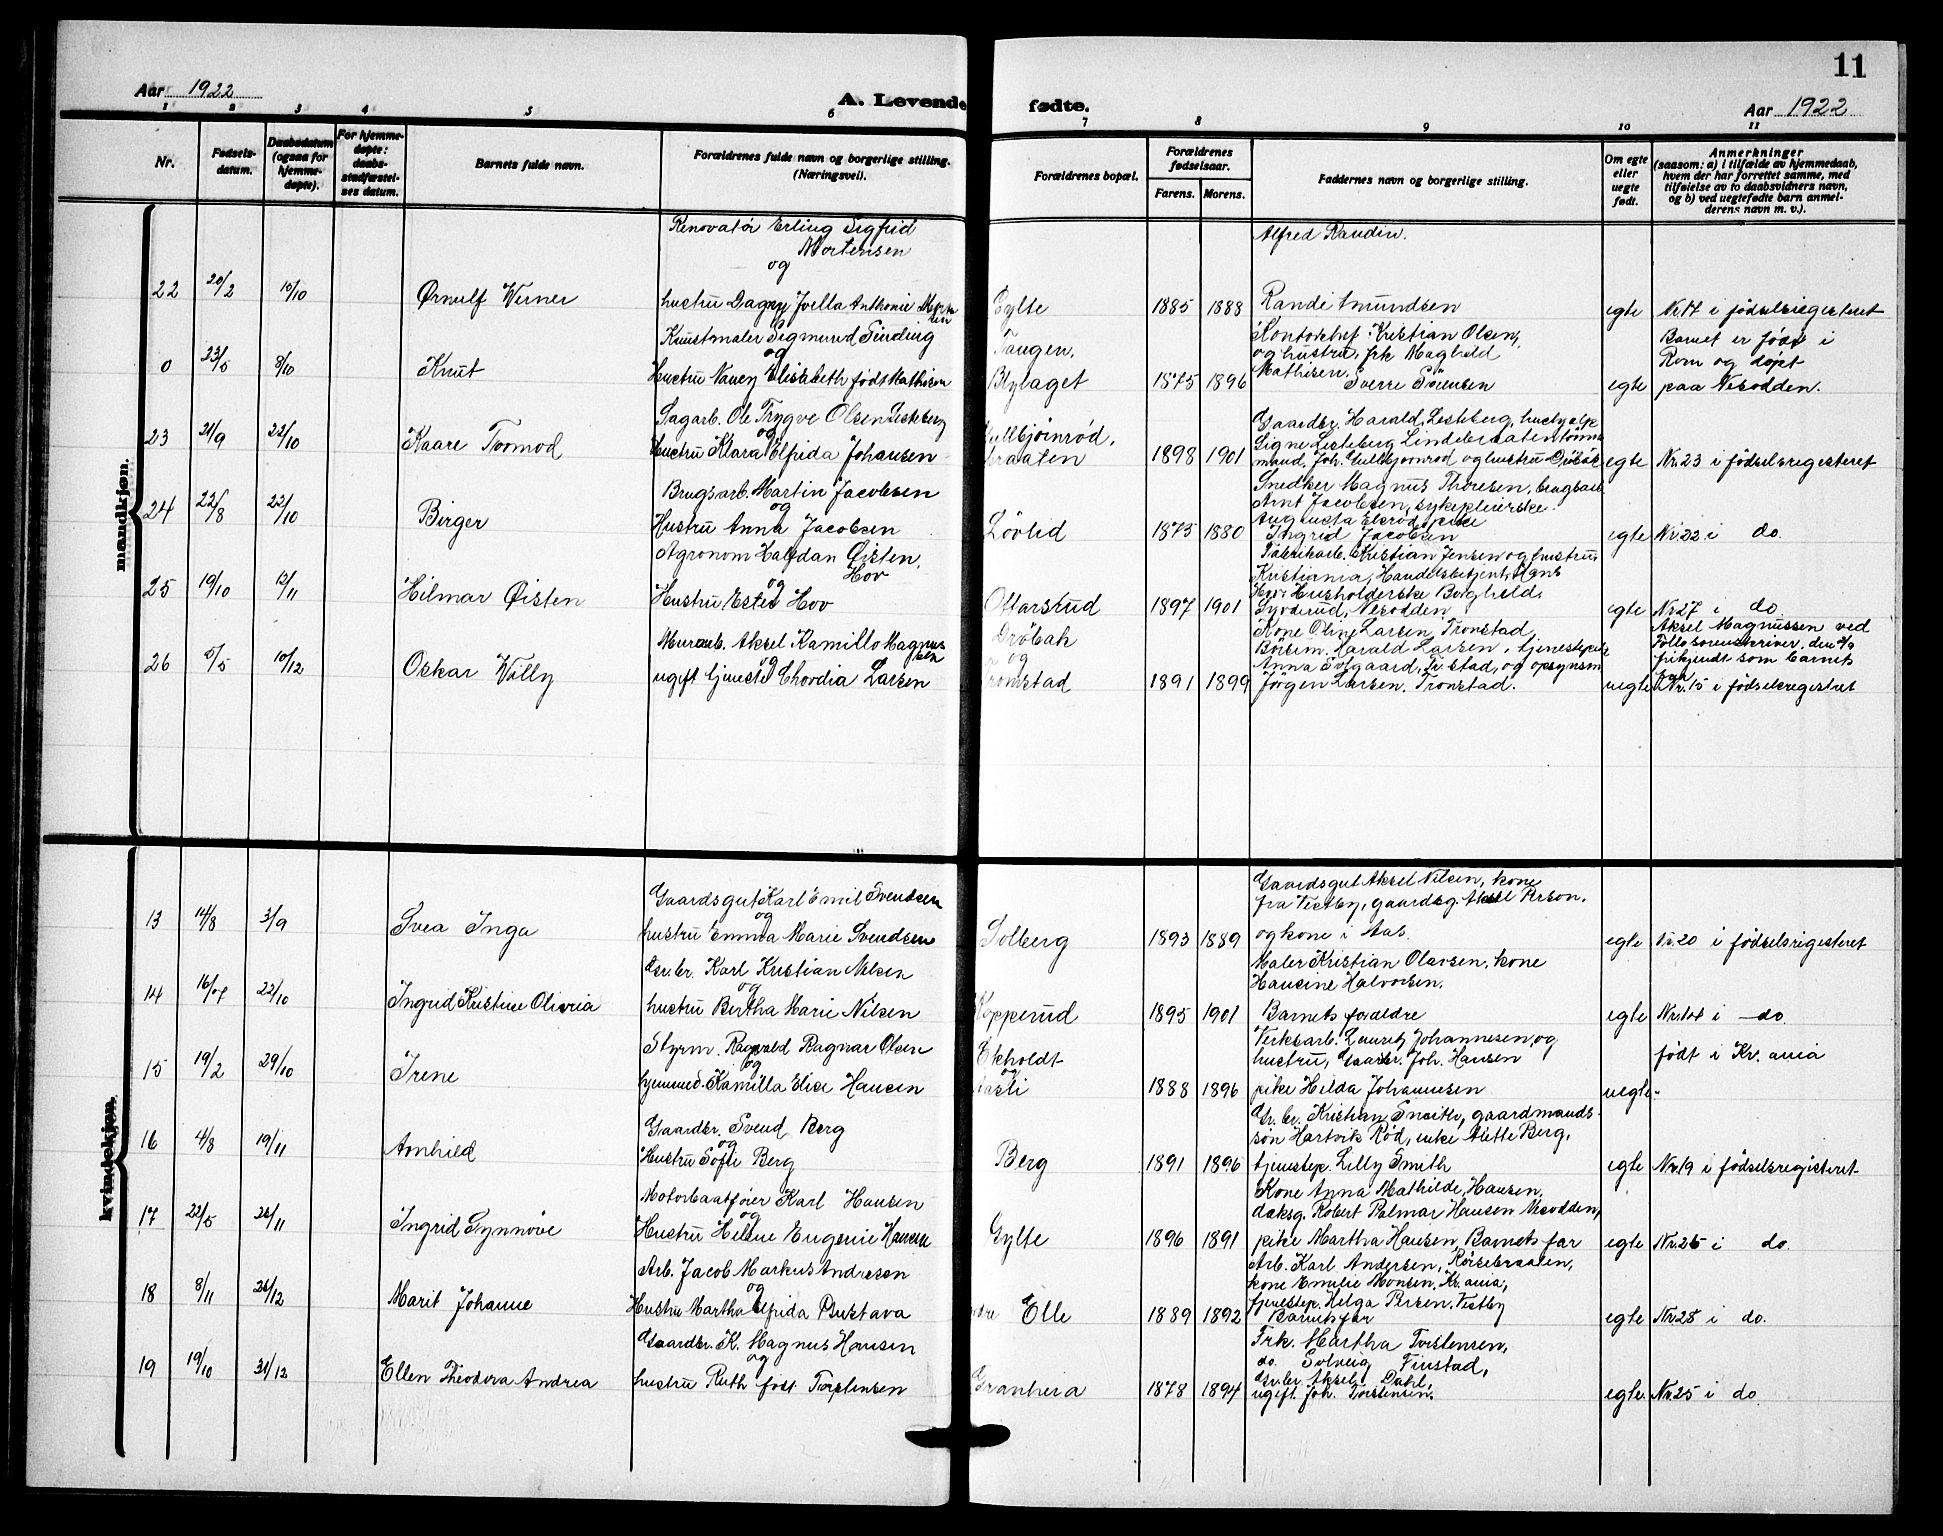 11
Aar 1922
A. Levende fødte.
Aar 1922
1 2 3 4 5 6 7 8 9 10 11
Nr.
Fødsels-
datum.
Daabsdatum
(ogsaa for
hjemme-
døpte).
For hjemme-
døpte:
daabs-
stadfæstel-
ses datum.
Barnets fulde navn.
Forældrenes fulde navn og borgerlige stilling.
(Næringsvei).
Forældrenes bopæl.
Forældrenes
fødselsaar.
Farens. Morens.
Faddernes navn og borgerlige stilling.
Om egte
eller
uegte
født.
Anmerkninger
(saasom: a) i tilfælde av hjemmedaab,
hvem der har forrettet samme, med
tilføielse av to daabsvidners navn,
og b) ved uegtefødte barn anmel-
derens navn m. v.).
mandkjøn.
Renovatør Erling Sigfrid
Mortensen
og
Alfred Randin.
22 20/2 10/10 Ørnulf Werner
hustru Dagny Joella Anthonie
Gylte 1885 1888 Randi Amundsen egte Nr 17 i fødselsregisteret
Kunstmaler Sigmund Sinding
og
0 23/5 8/10 Knut
Hustru Nancy Elisabeth født Mathisen
Tangen,
Blylaget 1875 1896
Kontorchef Kristian Olsen,
og hustru, frk Maghild
Mathisen. Sverre Sørensen
egte
Barnet er født i
Rom og døpt
paa Nesodden.
Sagarb. Ole Trygve Olsen Leskberg
og
23 21/9 22/10 Kaare Tormod
Hustru Klara Elfrida Johansen
braaten 1898 1901
Gaardbr. Harald
Signe
mand. Joh. og hustru Drøbak
egte Nr. 23 i fødselsregisteret
Brugsarb. Martin Jacobsen
og
24 22/8 22/10 Birger
Hustru Anna Jacobsen
Løvlid 1875 1880
Snedker Magnus Thoresen,
Arnt Jacobsen, sykepleierske
Augusta
Ingrid Jacobsen
egte Nr 22 i do.
Agronom Halfdan Øisten
Hov
og
25 19/10 12/11 Hilmar Øisten
Hustru Ester Hov
Oftarstud 1897 1901
Fabrikarb. Kristian Jensen og hustru,
Kristiania, Handelsbetjent Hans
Hov. Husholderske Borghild
Nesodden
egte Nr 27 i do.
Murarb. Aksel Kamillo Magnus
sen
og
26 5/5 10/12 Oskar Willy
ugift tjeneste Larsen
Drøbak
og
Tronstad 1891 1899
Kone Oline Larsen Tronstad,
Harald Larsen,
Anna og opsynsm
Jørgen Larsen. Tronstad.
uegte
Aksel Magnussen ved
Follo sorenskriver, den
frikjendt som barnets
far
Nr. 15 i fødselsregistret
kvindekjøn.
Gaardsgut Karl Emil Svendsen
og
13 14/8 3/9 Svea Inga
hustru Emma Marie Svendsen
Solberg 1893 1889
Gaardsgut Aksel Nilsen, kone
fra Vestby, gaardsg.
og kone i Aas.
egte Nr. 20 i fødselsregisteret
Gr.br. Karl Kristian Nilsen
og
14 16/07 22/10 Ingrid Kristine Olivia
hustru Bertha Marie Nilsen
Kopperud 1895 1901
Maler Kristian Olavsen, kone
Hansine Halvorsen.
Barnets foreldre
egte i do.
Styrm. Ragnvald Ragnar Olsen
og
15 19/2 29/10 Irene
hjemmed. Kamilla Elise Hansen
Ekholdt
og
1888 1896
Verksarb. Lauritz Johannesen, og
hustru, Gaardbr. Joh. Hansen
pike Hilda Johannesen
uegte.
født i Kr.ania
Gaardbr. Svend Berg
og
16 4/8 19/11 Arnhild
Hustru Sofie Berg
Berg 1891 1896
Gr. br. Kristian Smith, gaardmands-
søn Hartvik Rød, enke Alette Berg,
tjenestep. Lilly Smith
egte Nr. 19 i fødselsregisteret
Motorbaatfører Karl Hansen
og
17 22/5 26/11 Ingrid Synnøve
Hustru Helene Eugenie Hansen
Gylte 1896 1891
Kone Anna Mathilde Hansen,
dæksg. Robert Palmar Hansen Nesodden,
pike Martha Hansen, Barnets far
egte Nr. 26 i do.
Arb. Jacob Markus Andresen
og
18 8/11 26/12 Marit Johanne
Hustru Martha Elfrida Gustava
Elle 1889 1892
Arb. Karl Andersen,
kone Emilie Monsen, Kr.ania,
tjenestep. Helga Persen. Vestby
Barnets far
egte Nr. 28 i do.
Gaardbr. K. Magnus Hansen
og
19 19/10 31/12 Ellen Theodora Andrea
hustru Ruth født Torstensen
Granheia 1878 1894
Frk. Martha Torstensen,
do. Solveig Finstad,
Gr.br Aksel Dahl,
ugift. Joh. Torstensen.
egte. Nr. 25 i do.